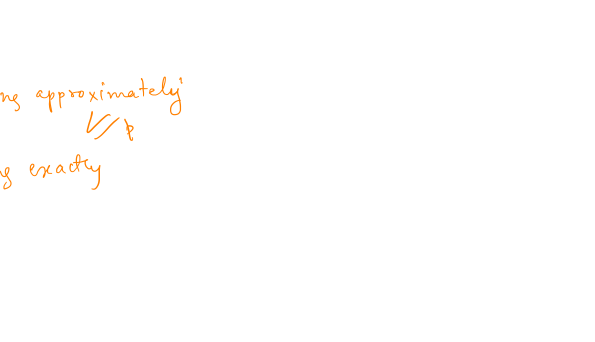 ng approximately
g exactly